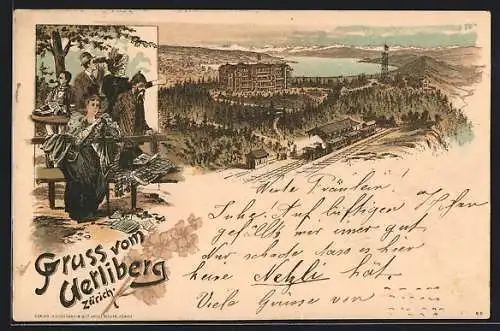 Gruss vom
Uetliberg
Zürich.
Auf luftigen Höhen
gefällts mir immer gut
nur schade dass es hier
keine Nebzli hat.
Viele Grüsse von